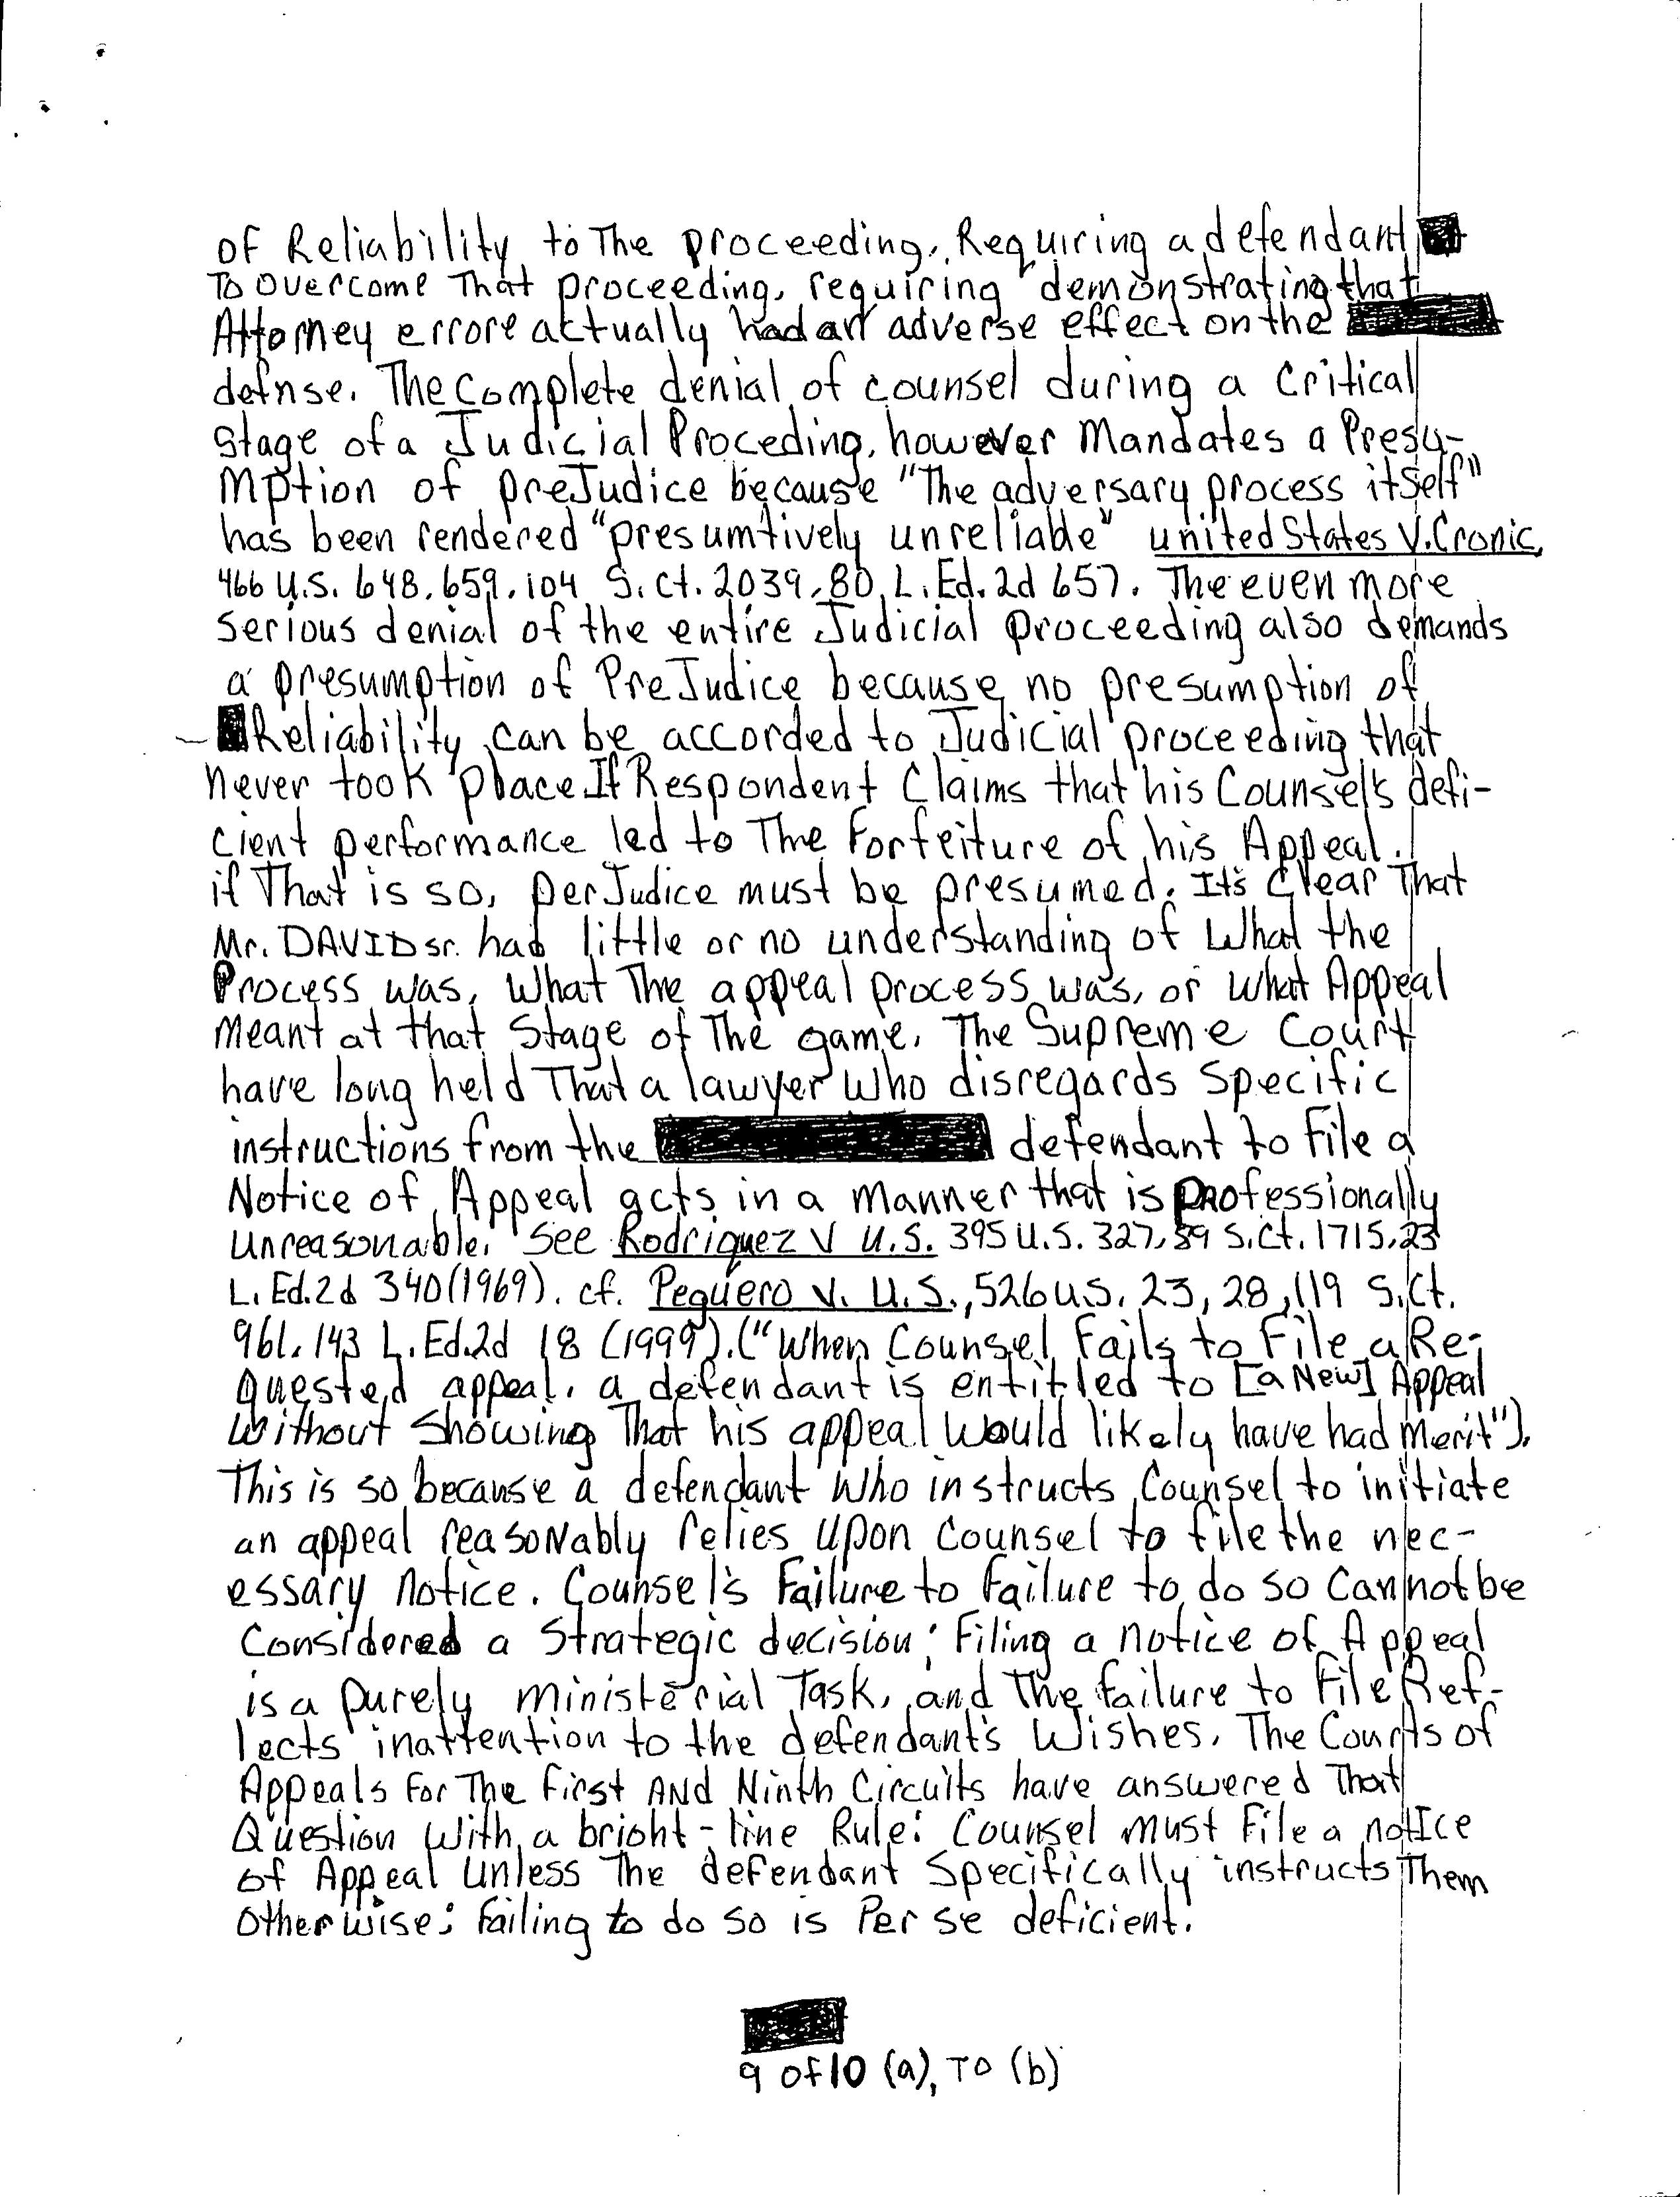 of Reliability to The proceeding, Requiring a defendant
To overcome That proceeding, requiring demonstrating that
Attorney errore actually had an adverse effect on the
defnse. The Complete denial of counsel during a Critical
Stage of a Judicial Proceding, however Mandates a Presu-
Mption of preJudice because "The adversary process itself"
has been rendered "presumtively unreliable" united States V. Cronic,
466 U.S. 648, 659, 104 S. Ct. 2039, 80 L. Ed. 2d 657. The even more
Serious denial of the entire Judicial proceeding also demands
a presumption of PreJudice because no presumption of
Reliability can be accorded to Judicial proceeding that
never took place If Respondent Claims that his Counsel's defi-
cient performance led to The Forfeiture of his Appeal.
if That is so, perJudice must be presumed. It's Clear That
Mr. DAVID sr. had little or no understanding of What the
Process was, What The appeal process was, or what Appeal
Meant at that Stage of The game. The Supreme Court
have long held That a lawyer Who disregards Specific
instructions from the defendant to File a
Notice of Appeal acts in a Manner that is Professionally
Unreasonable. See Rodriquez V U.S. 395 U.S. 327, 89 S.Ct. 1715, 23
L. Ed. 2d 340 (1969). cf. Peguero V. U.S., 526 U.S. 23, 28, 119 S.Ct.
961, 143 L. Ed.2d 18 (1999). ("When Counsel Fails to File a Re-
quested appeal, a defendant is entitled to [a New] Appeal
Without Showing That his appeal Would likely have had Merit").
This is so because a defendant Who instructs Counsel to initiate
an appeal reasonably relies Upon Counsel to file the nec-
essary notice. Counsel's Failure to failure to do so Cannot be
Considered a Strategic decision; Filing a notice of Appeal
is a purely ministerial Task, and The failure to File Ref-
lects inattention to the defendant's Wishes. The Courts of
Appeals For The First AND Ninth Circuits have answered That
Question With a bright-line Rule: Counsel must File a notice
of Appeal Unless The defendant Specifically instructs Them
Otherwise; failing to do so is Per se deficient.
9 of 10 (a), TO (b)